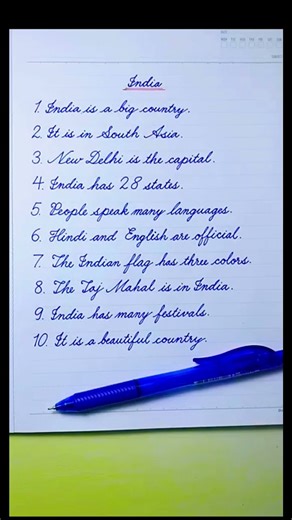 India
1. India is a big country.
2. It is in South Asia.
3. New Delhi is the capital.
4. India has 28 states.
5. People speak many languages.
6. Hindi and English are official.
7. The Indian flag has three colors.
8. The Taj Mahal is in India.
9. India has many festivals.
10. It is a beautiful country.